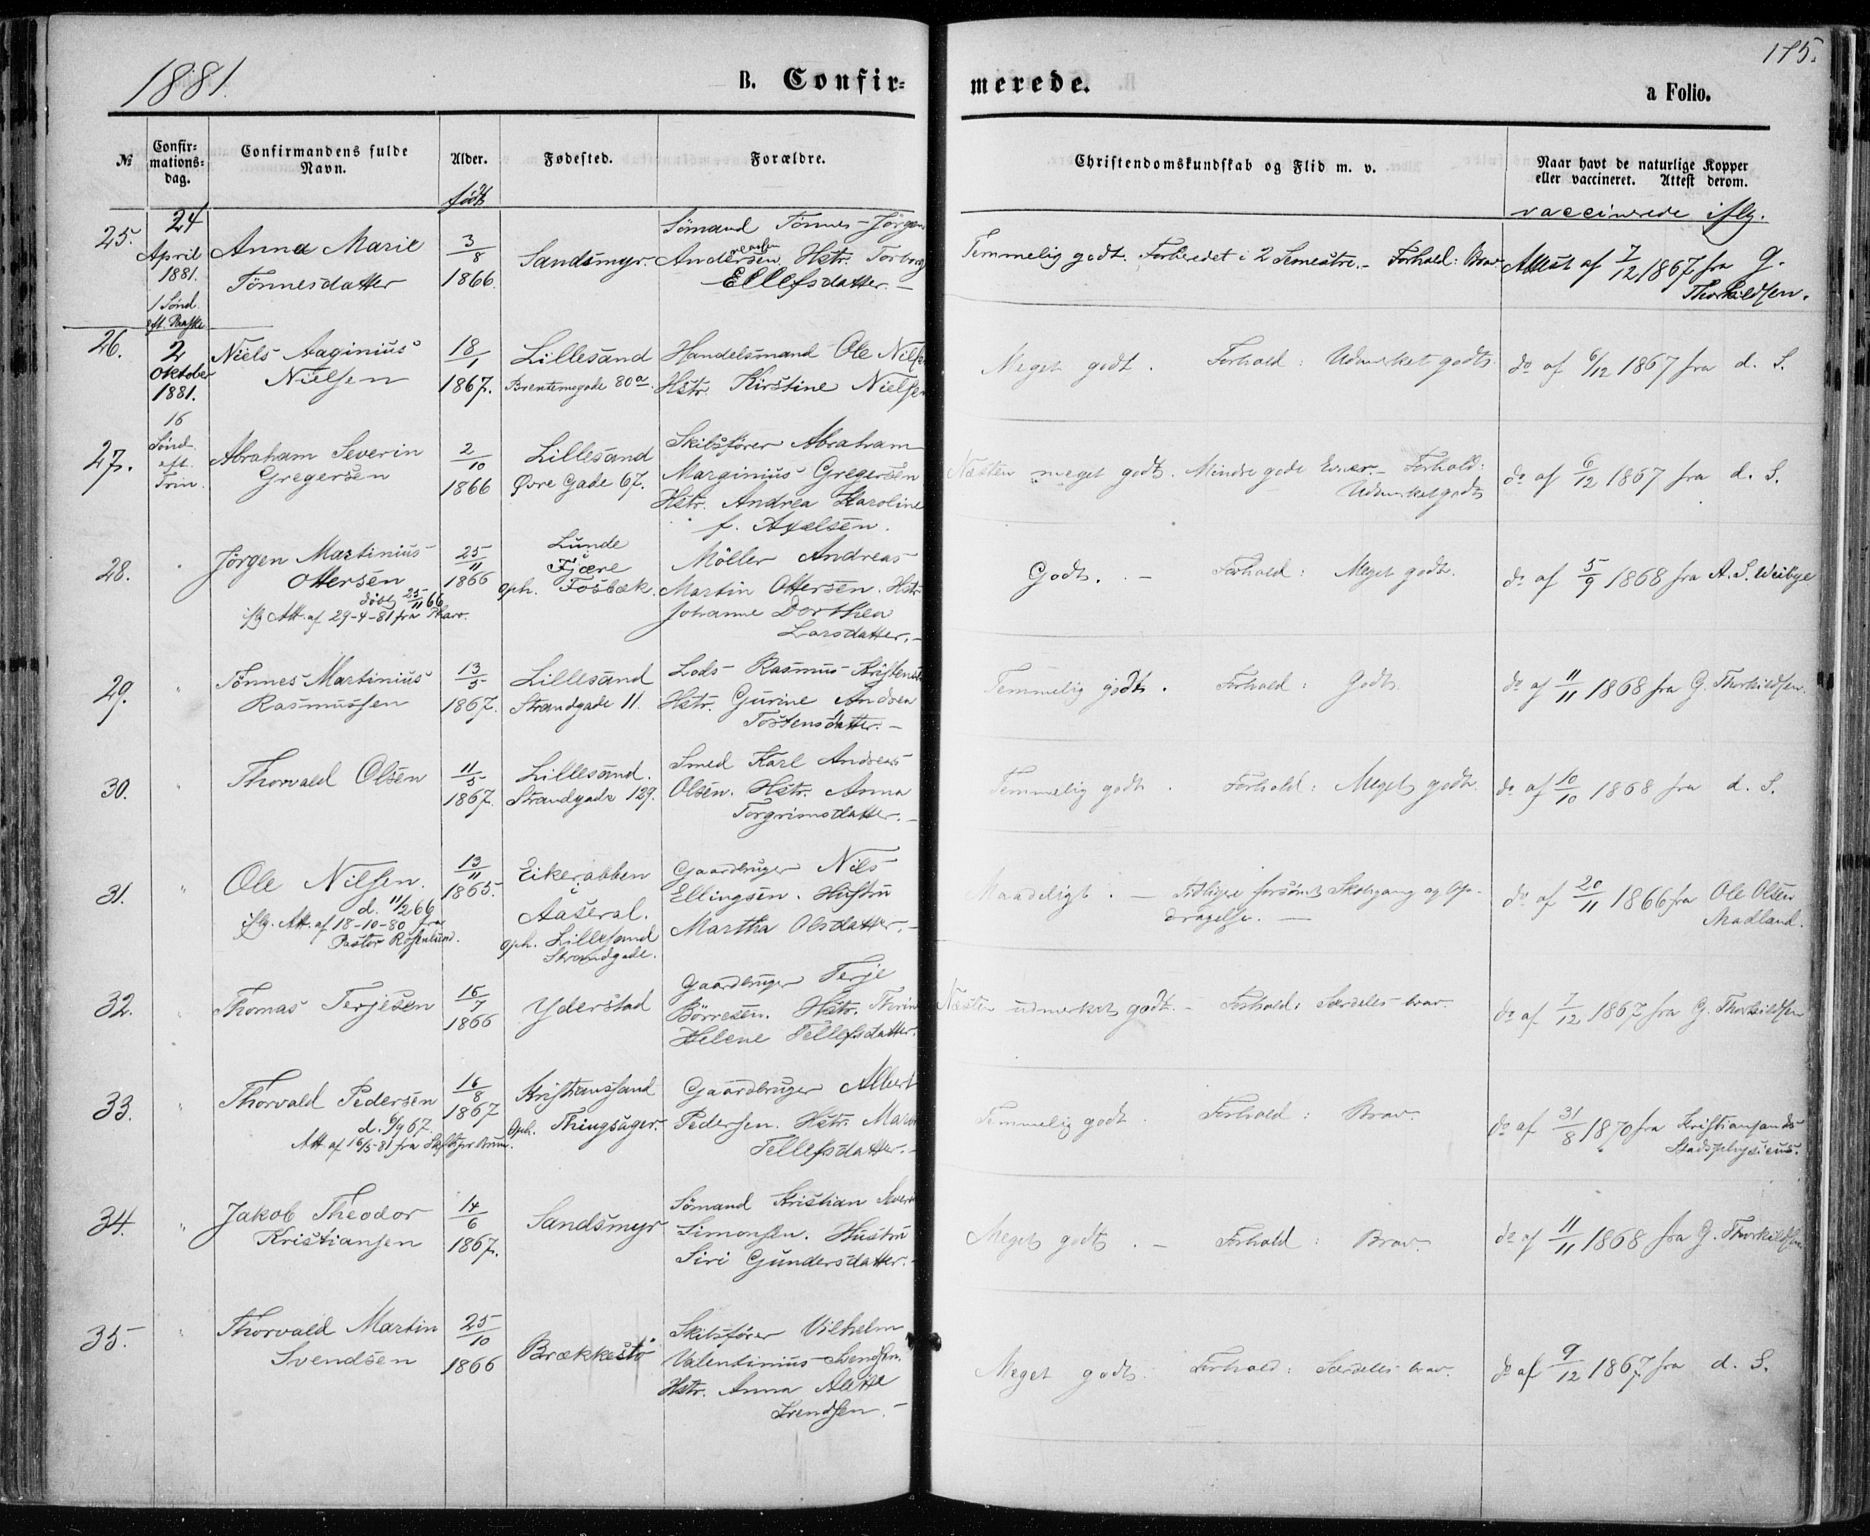 1881.
B. Confir=
merede.
175.
a Folio.
№
Confir-
mations-
dag.
Confirmandens fulde
Navn.
Alder.
Fødested.
Forældre.
Christendomskundskab og Flid m. v.
Naar havt de naturlige Kopper
eller vaccineret. Attest derom.
født
vaccinerede iflg.
25.
24
April
1881.
1 Sønd.
eft. Paaske
Anna Marie
Tönnesdatter
3/8
1866
Sandsmyr.
Sömand Tönnes Jörgen
Andersen. Hstr. Torborg
Ellefsdatter. –
Temmelig godt. Forberedet i 2 Semestre. – Forhold: Brav
Attest af 7/12 1867 fra G.
Thorkildsen.
26.
2
Oktober
1881.
16
Sönd.
eft.
Trin.
Niels Aaginius
Nielsen
18/1
1867.
Lillesand
Brentemsgade 80a.
Handelsmand Ole Nilsen
Hstr. Kirstine Nielsen
Meget godt. Forhold: Udmerket godt.
do af 6/12 1867 fra d. S.
27.
Abraham Severin
Gregersen
2/10
1866
Lillesand
Øvre Gade 67.
Skibsfører Abraham
Marginius Gregersen
Hstr. Andrea Karoline
f. Axelsen.
Næsten meget godt. Mindre gode Evner. – Forhold:
Udmerket godt
do af 6/12 1867 fra d. S.
28.
Jörgen Martinius
Ottersen
döbt 25/11 66
iflg Att. af 29-4-81 fra Pharr.
25/11
1866
Lunde
i
Fjære
oph. Fosbæk.
Möller Andreas
Martin Ottersen. Hstr
Johanne Dorthea
Larsdatter. –
Godt. – Forhold: Meget godt.
do af 5/9 1868 fra A. S. Weibye
29.
Tönnes Martinius
Rasmussen
13/5
1867.
Lillesand
Strandgade 11.
Lods Rasmus Kristensen
Hstr. Gurine Andrea
Tostensdatter. –
Temmelig godt. Forhold: Godt.
do af 11/11 1868 fra G. Thorkildsen.
30.
Thorvald Olsen
11/5
1867.
Lillesand.
Strandgade 129.
Smed Karl Andreas
Olsen. Hstr. Anna
Torgrimsdatter. –
Temmelig godt. Forhold: Meget godt.
do af 10/10 1868 fra d. S.
31.
Ole Nilsen.
d. 11/2 66
iflg. Att. af 18-10-80 fra
Pastor Rosenlund.
13/11
1865.
Eikerabben
i
Aaseral.
oph. Lillesand
Strandgade.
Gaardbruger Nils
Ellingsen. Hustru
Martha Olsdatter. –
Maadeligt. – Tidligere forsömt Skolegang og Op-
dragelse. –
do af 20/11 1866 fra Ole Olsen
Madland.
32.
Thomas Terjesen
16/7
1866
Yderstad
Gaardbruger Terje
Börresen. Hstr. Thorine
Helene Tellefsdatter.
Næsten udmerket godt. – Forhold: Særdeles brav.
do af 7/12 1867 fra G. Thorkildsen
33.
Thorvald Pedersen
d. 6/9 67.
Att af 16/5-81 fra
16/8
1867
Kristianssand
Oph. Thingsager.
Gaardbruger Albert
Pedersen. Hstr. Maren
Tellefsdatter. –
Temmelig godt. Forhold: Brav.
do af 31/8 1870 fra Kristiansands
Stadsphysicus.
34.
Jakob Theodor
Kristiansen
14/6
1867.
Sandsmyr
Sömand Kristian
Simonsen. Hustru
Siri Gundersdatter. –
Meget godt. – Forhold: Brav.
do af 11/11 1868 fra G. Thorkildsen
35.
Thorvald Martin
Svendsen
25/10
1866
Brækkestö
Skibsfører Vilhelm
Valentinius Svendsen.
Hstr. Anna Alette
Svendsen. –
Meget godt. Forhold: Særdeles brav.
do af 9/12 1867 fra d. S.